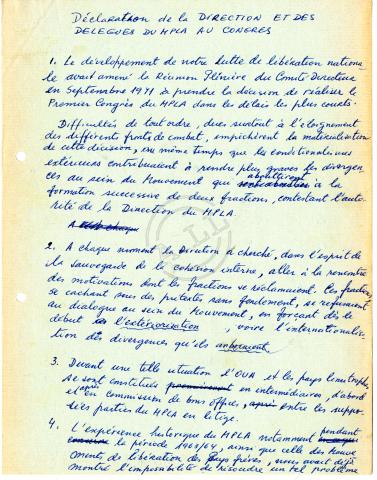 Déclaration de la DIRECTION ET DES
DELEGUES DU MPLA AU CONGRES
1. Le développement de notre lutte de libération nationa-
le avait amené la Réunion Plénière du Comité Directeur
en Septembre 1971 à prendre la décision de réaliser le
Premier Congrès du MPLA dans les délais les plus courts.
Difficultés de tout ordre, dues surtout à l'éloignement
des différents fronts de combat, empêchèrent la matérialisation
de cette décision, au même temps que les conditionalismes
extérieurs contribuaient à rendre plus graves les divergen-
ces au sein du Mouvement que aboutirent à la
formation successive de deux fractions, contestant l'auto-
rité de la Direction du MPLA.
2. A chaque moment la Direction a cherché, dans l'esprit de
la sauvegarde de la cohésion interne, aller à la rencontre
des motivations dont les fractions se réclamaient. Ces fractions,
se cachant sous des pretextes sans fondement, se refusaient
au dialogue au sein du Mouvement, en forçant dès le
début l'extériorisation, voire l'internationalisa-
tion des divergences qu'ils
3. Durant une telle situation l'OUA et les pays limitrophes
se sont constitués en intermédiaires, d'abord
et après en commission de bons offices, entre les suppo-
sées parties du MPLA en litige.
4. L'expérience historique du MPLA notamment pendant
la période 1963/64, ainsi que celle des Mouve-
ments de libération des Pays frères, nous avait déjà
montré l'impossibilité de résoudre un tel problème